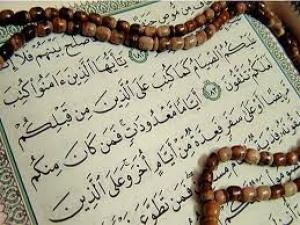 مِن مُّوصٍ
صْلَحَ بَيْنَهُمْ فَلَا ۝١٨٢ يَٰٓأَيُّهَا ٱلَّذِينَ ءَامَنُوا۟ كُتِبَ
عَلَيْكُمُ ٱلصِّيَامُ كَمَا كُتِبَ عَلَى ٱلَّذِينَ مِن قَبْلِكُمْ
لَعَلَّكُمْ تَتَّقُونَ ۝١٨٣ أَيَّامًا مَّعْدُودَٰتٍ فَمَن كَانَ مِنكُم
مَّرِيضًا أَوْ عَلَىٰ سَفَرٍ فَعِدَّةٌ مِّنْ أَيَّامٍ أُخَرَ وَعَلَى ٱلَّذِينَ
فَمَن تَطَوَّعَ